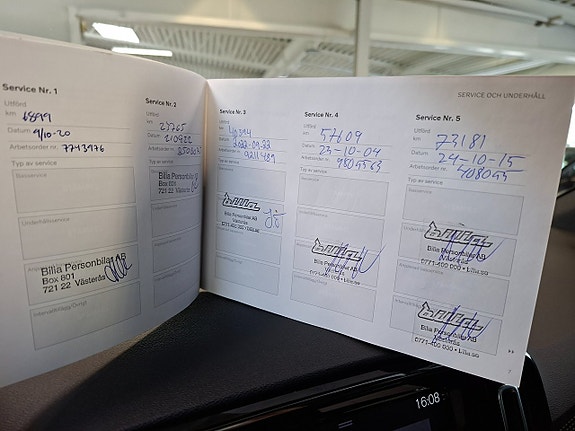 SERVICE OCH UNDERHÅLL
Service Nr. 1
Utförd
km 6899
Datum 9/10-20
Arbetsorder nr. 7743976
Typ av service
Basservice
Underhållsservice
Bilia Personbilar AB
Box 801
721 22 Västerås
Intervalltillägg/Övrigt
Service Nr. 2
Utförd
km 23765
Datum 210922
Arbetsorder nr.
Typ av service
Bilia Personbilar
Box 801
721 22 Västerås
Service Nr. 3
Utförd
km
Datum 2022-09-22
Arbetsorder nr. 9211489
Typ av service
Basservice
Bilia Personbilar AB
Västerås
0771-400 000 • bilia.se
Service Nr. 4
Utförd
km 57609
Datum 23-10-04
Arbetsorder nr.
Typ av service
Basservice
Underhållsservice
Bilia Personbilar AB
Västerås
0771-400 000 • bilia.se
Service Nr. 5
Utförd
km 73181
Datum 24-10-15
Arbetsorder nr. 408045
Typ av service
Basservice
Bilia Personbilar AB
Västerås
0771-400 000 • bilia.se
Bilia Personbilar AB
Västerås
0771-400 000 • bilia.se
7
16:08